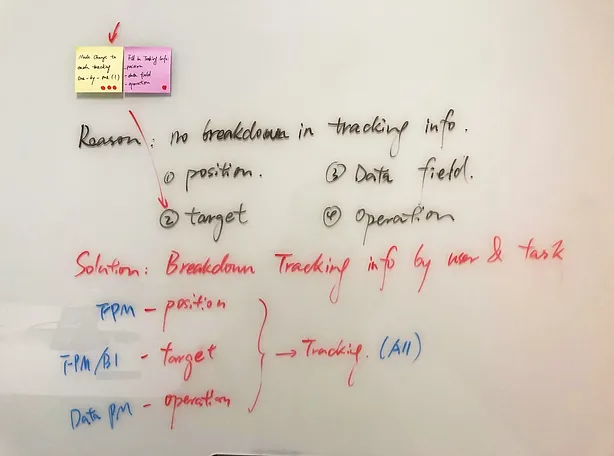 Make Change to
each tracking
one-by-one (!)
Fill in Tracking Info:
- position
- data field
- operation
Reason: no breakdown in tracking info.
① position. ③ Data field.
② target ④ operation
Solution: Breakdown Tracking info by user & task
T-PM - position
T-PM/BI - target → Tracking. (All)
Data PM - operation